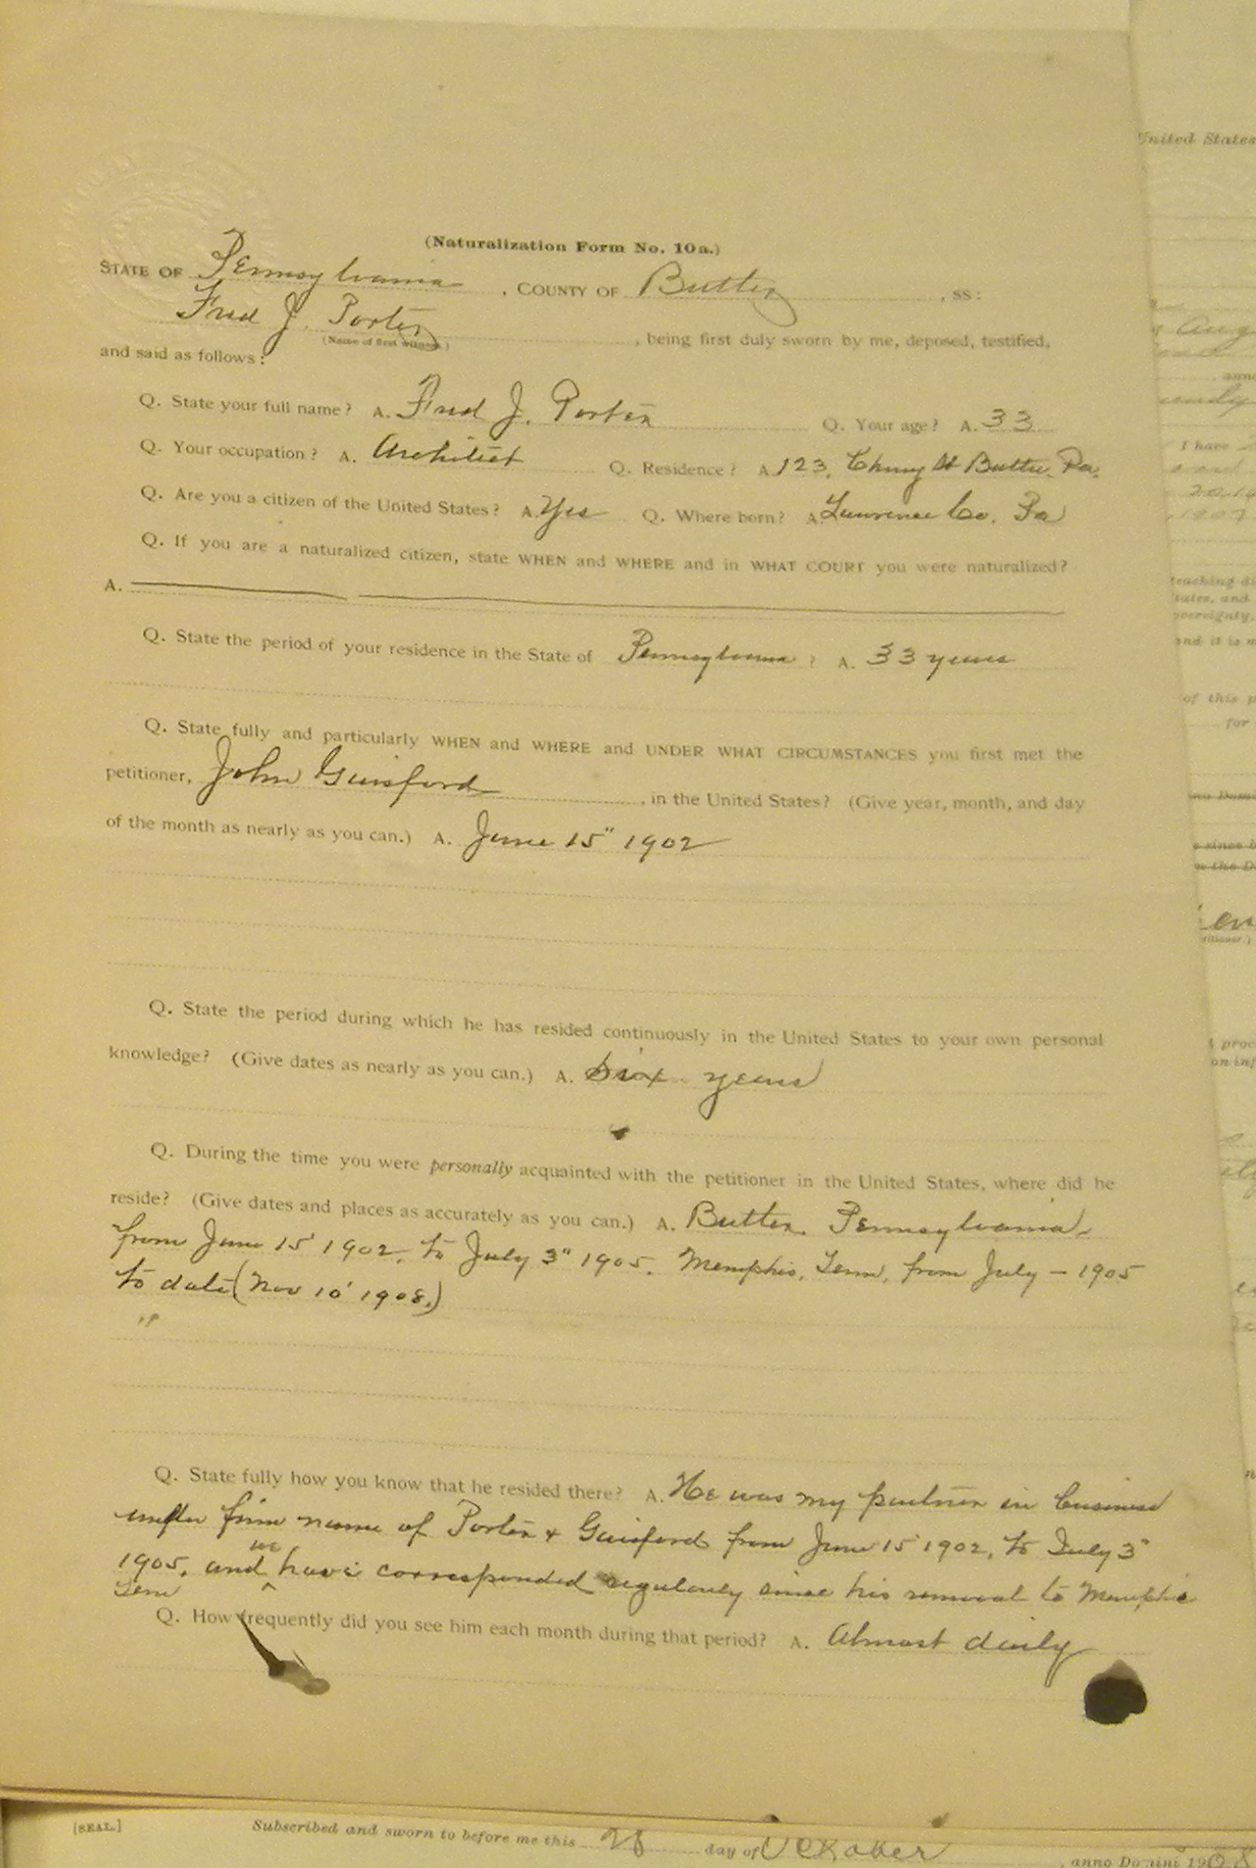 (Naturalization Form No. 10a.)
STATE OF Pennsylvania, COUNTY OF Butler, SS:
Fred J. Porter, being first duly sworn by me, deposed, testified,
(Name of first witness.)
and said as follows:
Q. State your full name? A. Fred J. Porter Q. Your age? A. 33
Q. Your occupation? A. Architect Q. Residence? A. 123, Cherry St Butler, Pa.
Q. Are you a citizen of the United States? A. Yes Q. Where born? A. Lawrence Co. Pa
Q. If you are a naturalized citizen, state WHEN and WHERE and in WHAT COURT you were naturalized?
A.
Q. State the period of your residence in the State of Pennsylvania? A. 33 years
Q. State fully and particularly WHEN and WHERE and UNDER WHAT CIRCUMSTANCES you first met the
petitioner, John Gaisford, in the United States? (Give year, month, and day
of the month as nearly as you can.) A. June 15" 1902
Q. State the period during which he has resided continuously in the United States to your own personal
knowledge? (Give dates as nearly as you can.) A. Six years
Q. During the time you were personally acquainted with the petitioner in the United States, where did he
reside? (Give dates and places as accurately as you can.) A. Butler, Pennsylvania,
from June 15' 1902, to July 3" 1905. Memphis, Tenn, from July - 1905
to date (Nov 10' 1908.)
"
Q. State fully how you know that he resided there? A. He was my partner in business
under firm name of Porter & Gaisford from June 15' 1902, to July 3"
1905, and we have corresponded regularly since his removal to Memphis
Tenn
Q. How frequently did you see him each month during that period? A. Almost daily
[SEAL.] Subscribed and sworn to before me this 28 day of October, anno Domini 1908
United States
Aug
I have
1907
teaching
tates, and
sovereignty,
and it is
of this
for